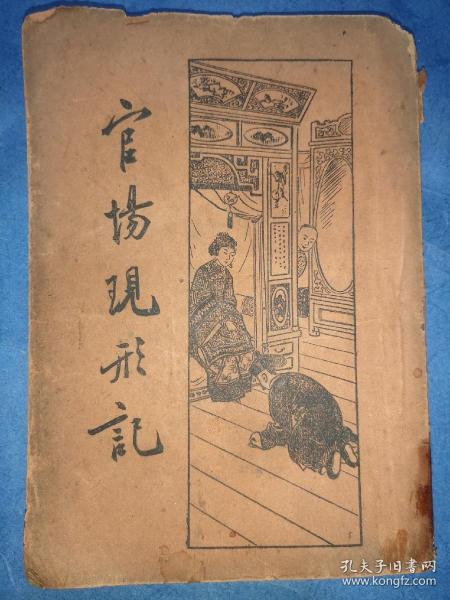 官场現形記
孔夫子旧书网
www.kongfz.com